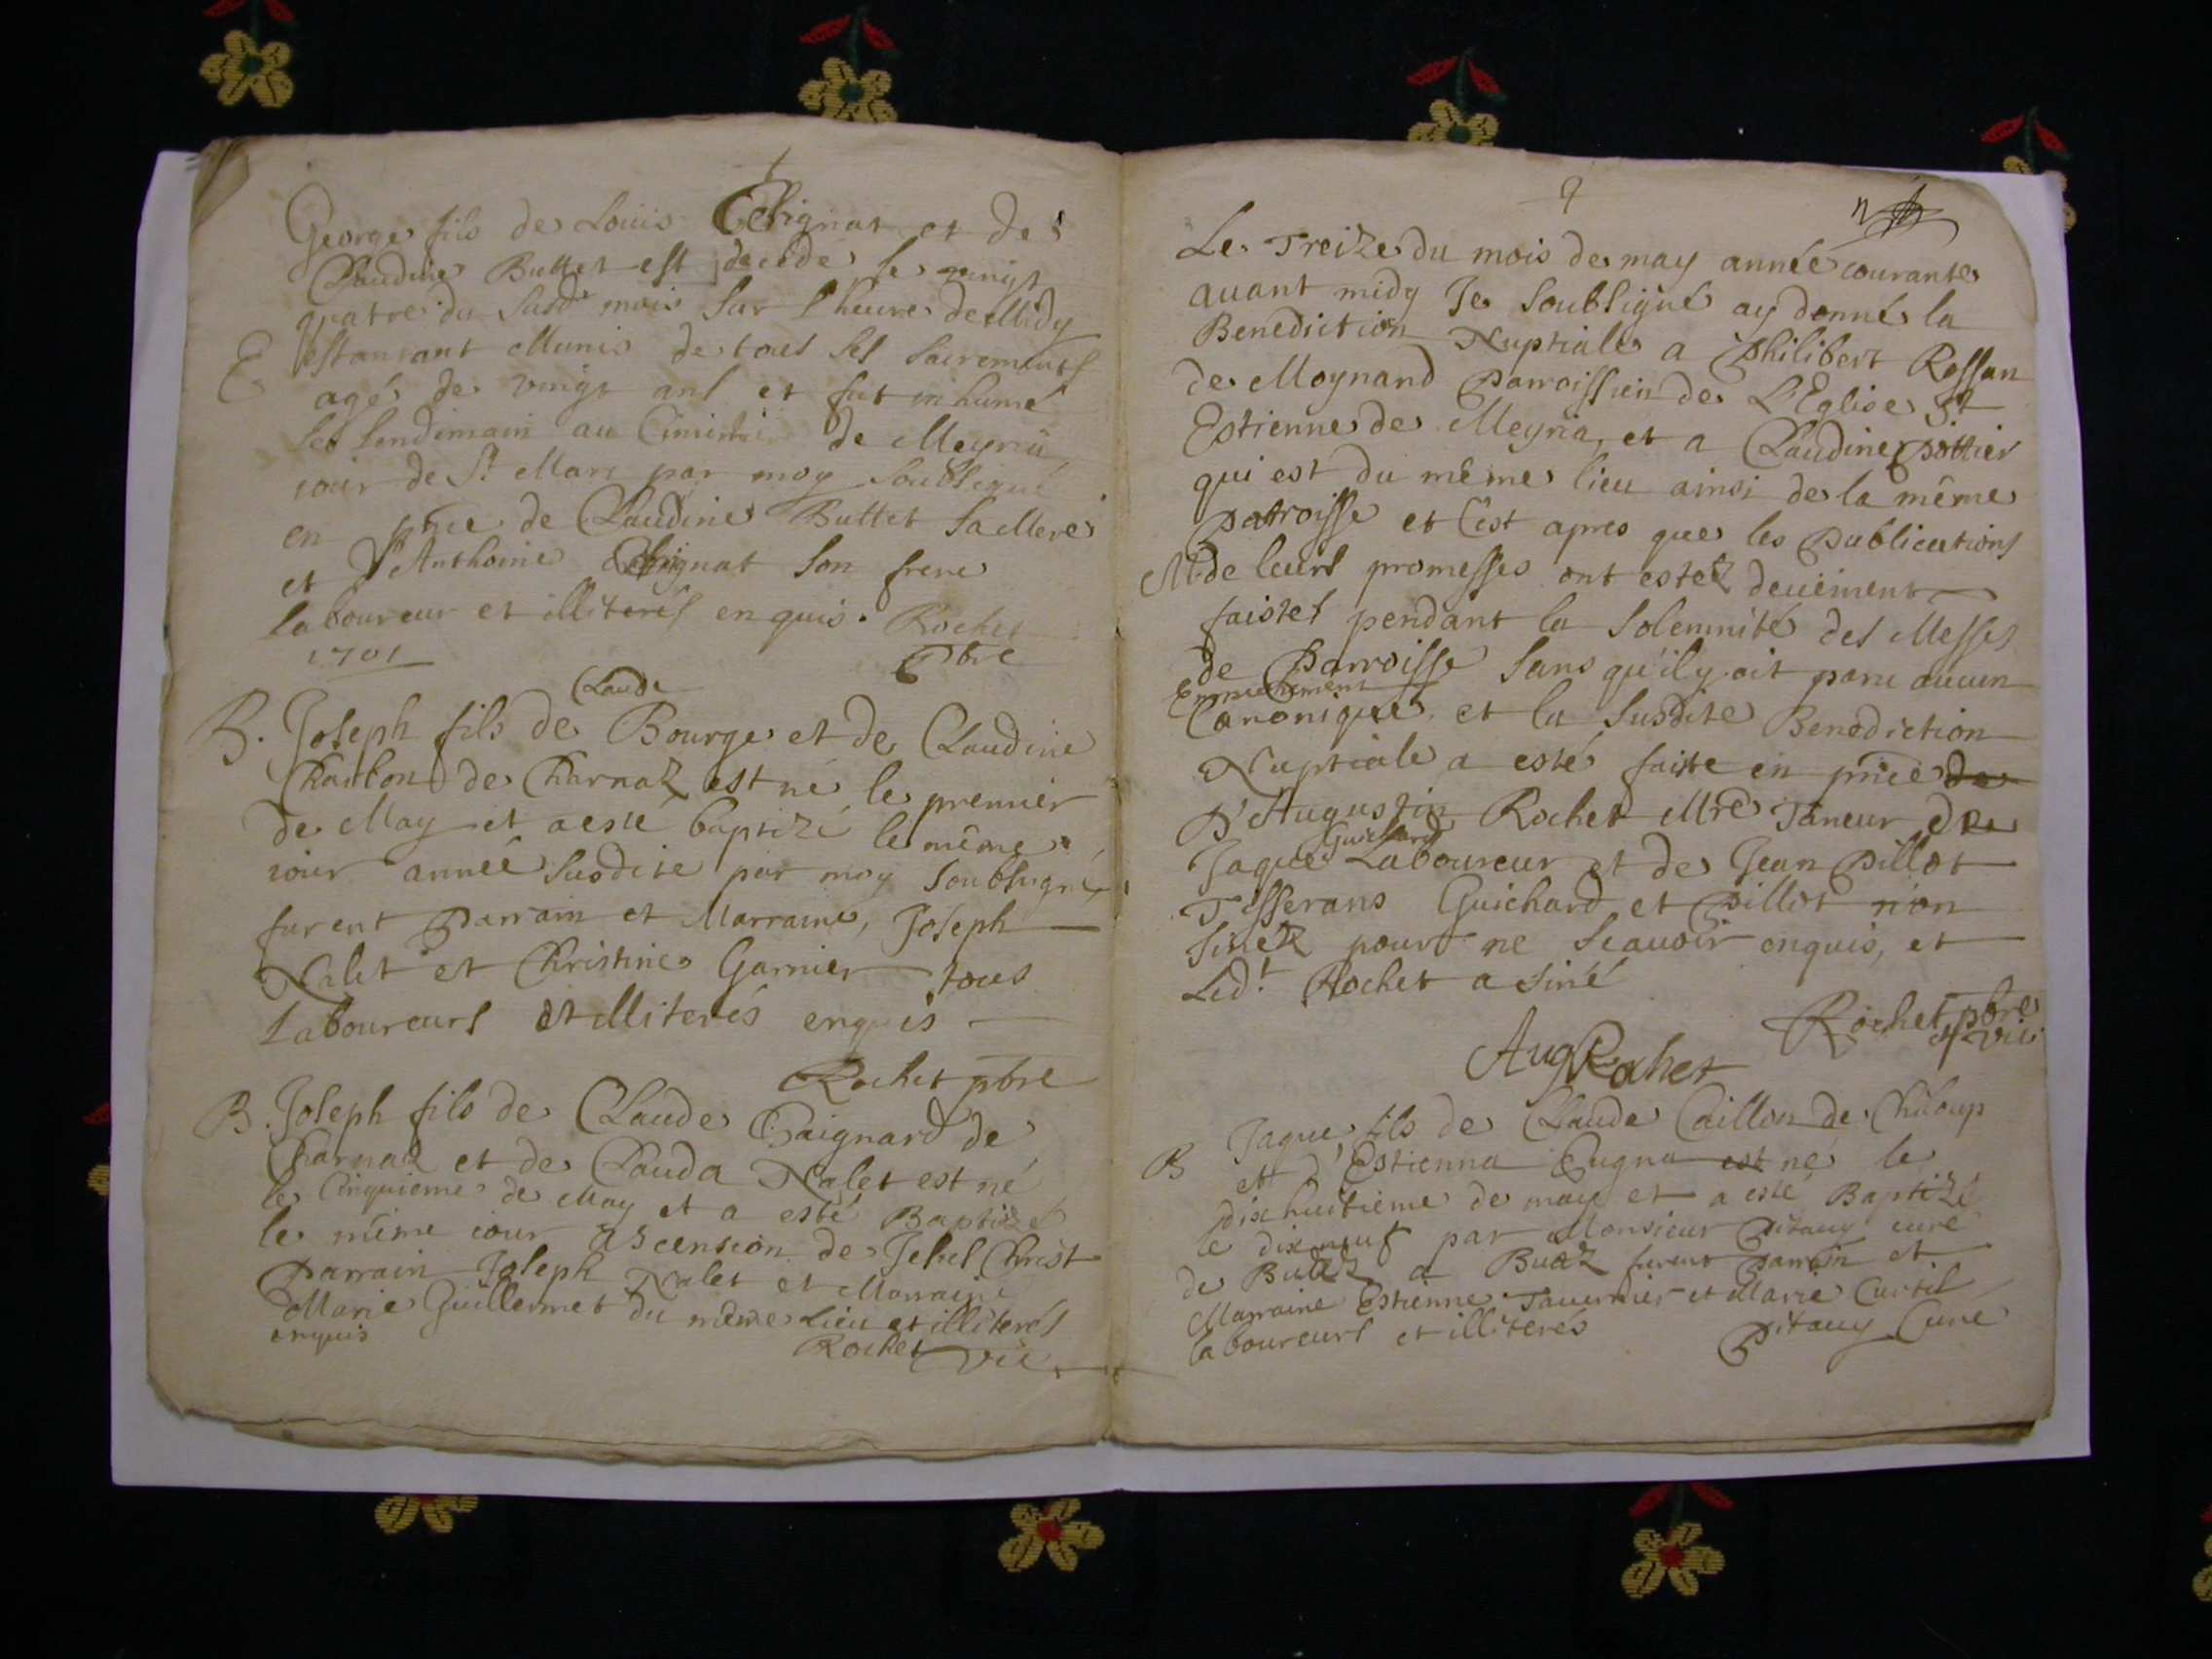 George fils de Louis Chignat et de
Claudine Buttet est decedé le vingt
quatre du susd mois sur l'heure de Midy
E
estant ant Munis de tous ses sacrements
agé de vingt ans et fut inhumé
le lendimain au Cimintier de Meyria,
iour de St Marc par moy Soubsigné
en pnce de Claudine Buttet sa Mere
et d'Anthoine Chignat son frere
laboureur et illiterés enquis. Rochet
1701 Pbre
Claude
B. Joseph fils de Bourge et de Claudine
de Charnaz est né le premier
de May et a esté baptizé le même
iour année susdite par moy Soubsigné,
furent Parrain et Marraine, Joseph
Nalet et Christine Garnier tous
Laboureurs et illiterés enquis
Rochet pbre
B. Joseph fils de Claude Gaignard de
Charnaz et de Clauda Nalet est né
le Cinquieme de May et a esté Baptizé
le même iour Ascension de Jesus Christ
Parrain Joseph Nalet et Marraine
Marie Guillermet du même Lieu et illiterés
enquis
Rochet vic
Le Treize du mois de may année courante
avant midy Je Soubsigné ay donné la
Benediction Nuptiale a Philibert Rossan
de Moynand Parroissien de L'Eglise St
Estienne de Meyria, et a Claudine Pottier
qui est du même lieu ainsi de la même
Parroisse et C'est apres que les Publications
M. de leurs promesses ont estéz deuëment
faistes pendant la Solemnité des Messes
de Parroisse sans qu'il y ait paru aucun
Empechement
Canonique et la Susdite Benediction
Nuptiale a esté faiste en pnce de
D'Augustin Rochet Mre Taneur de
Guichard
Jaque Laboureur et de Jean Pillot
Tisserans Guichard et Pillot n'on
sinez pour ne Scauoir enquis, et
Led.t Rochet a siné
Rochet pbre
et vic
Aug Rochet
B Jaque fils de Claude Caillon de Chiloup
et d'Estienna Cugna est né le
dixhuitieme de may et a esté Baptizé
le dix neuf par Monsieur Pitauy curé
de Buellz a Buaz furent Parrin et
Marraine Estienne Tauernier et Marie Curtil
laboureurs et illiterés Pitauy Curé